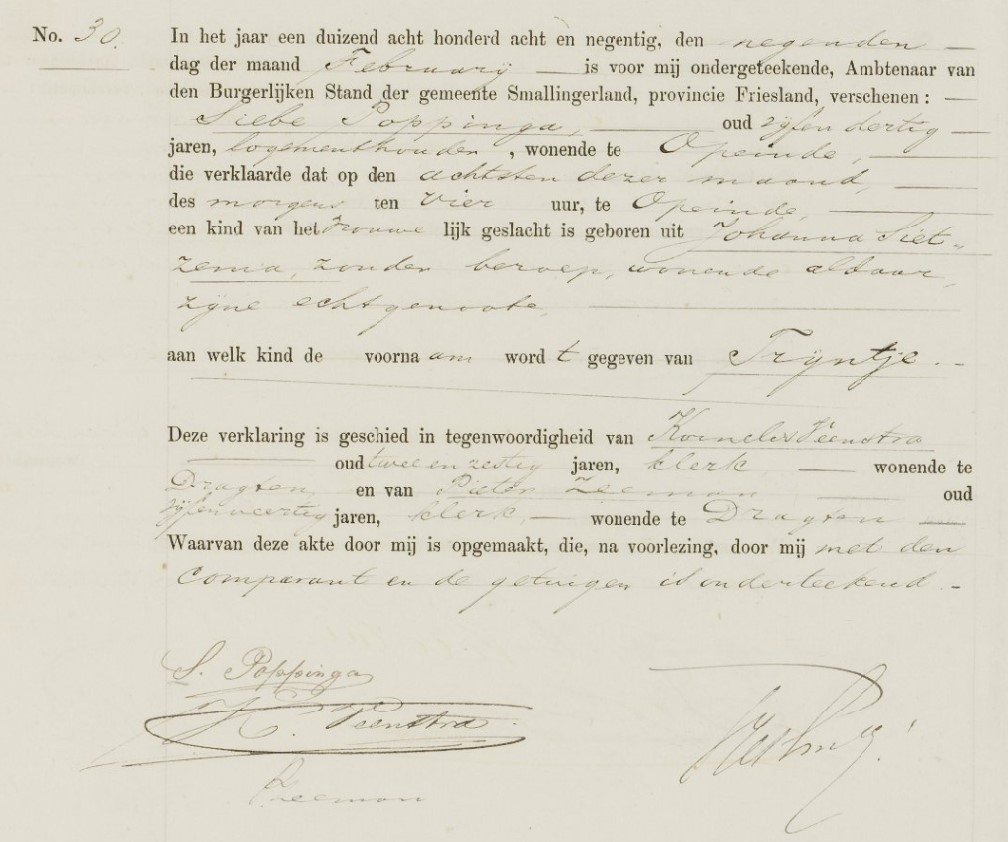 No. 30. In het jaar een duizend acht honderd acht en negentig, den negenden
dag der maand Februarij is voor mij ondergeteekende, Ambtenaar van
den Burgerlijken Stand der gemeente Smallingerland, provincie Friesland, verschenen:
Siebe Poppinga, oud vijf en dertig
jaren, logementhouder, wonende te Opeinde,
die verklaarde dat op den achtsten dezer maand,
des morgens ten vier uur, te Opeinde,
een kind van het vrouwe lijk geslacht is geboren uit Johanna Siet„
zema, zonder beroep, wonende aldaar,
zijne echtgenoote,
aan welk kind de voorna am word t gegeven van Trijntje.
Deze verklaring is geschied in tegenwoordigheid van Kornelis Veenstra
oud twee en zestig jaren, klerk, wonende te
Dragten, en van Pieter Zeeman oud
vijf en veertig jaren, klerk, wonende te Dragten
Waarvan deze akte door mij is opgemaakt, die, na voorlezing, door mij met den
comparant en de getuigen is onderteekend.
S. Poppinga
K. Veenstra
PZeeman